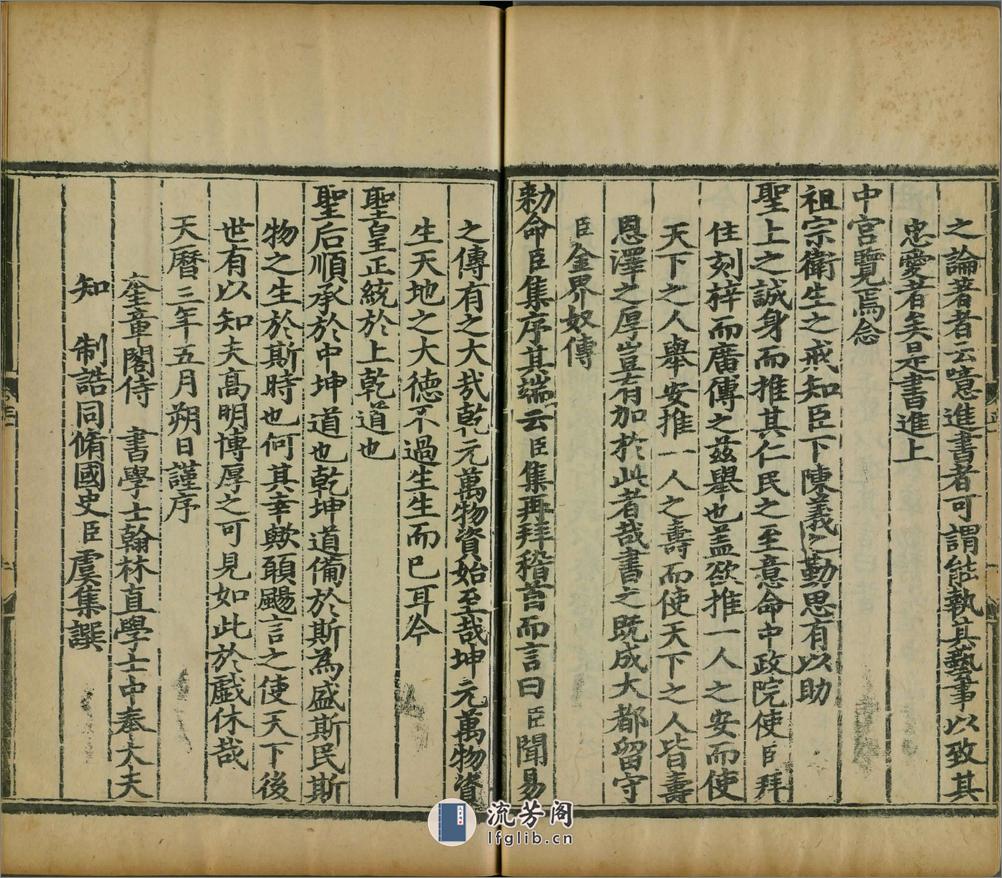 之論著者云噫進書者可謂能執其藝事以致其
忠愛者矣是書進上
中宮覽焉念
祖宗衛生之戒知臣下陳義之勤思有以助
聖上之誠身而推其仁民之至意命中政院使臣拜
住刻梓而廣傳之茲舉也盖欲推一人之安而使
天下之人舉安推一人之壽而使天下之人皆壽
恩澤之厚豈有加於此者哉書之既成大都留守
臣金界奴傳
勑命臣集序其端云臣集再拜稽首而言曰臣聞易
之傳有之大哉乾元萬物資始至哉坤元萬物資
生天地之大德不過生生而已耳今
聖皇正統於上乾道也
聖后順承於中坤道也乾坤道備於斯為盛斯民斯
物之生於斯時也何其幸歟頥颺言之使天下後
世有以知夫高明博厚之可見如此於戲休哉
天曆三年五月朔日謹序
奎章閣侍 書學士翰林直學士中奉大夫
知 制誥同脩國史臣虞集譔
流芳阁
lfglib.cn